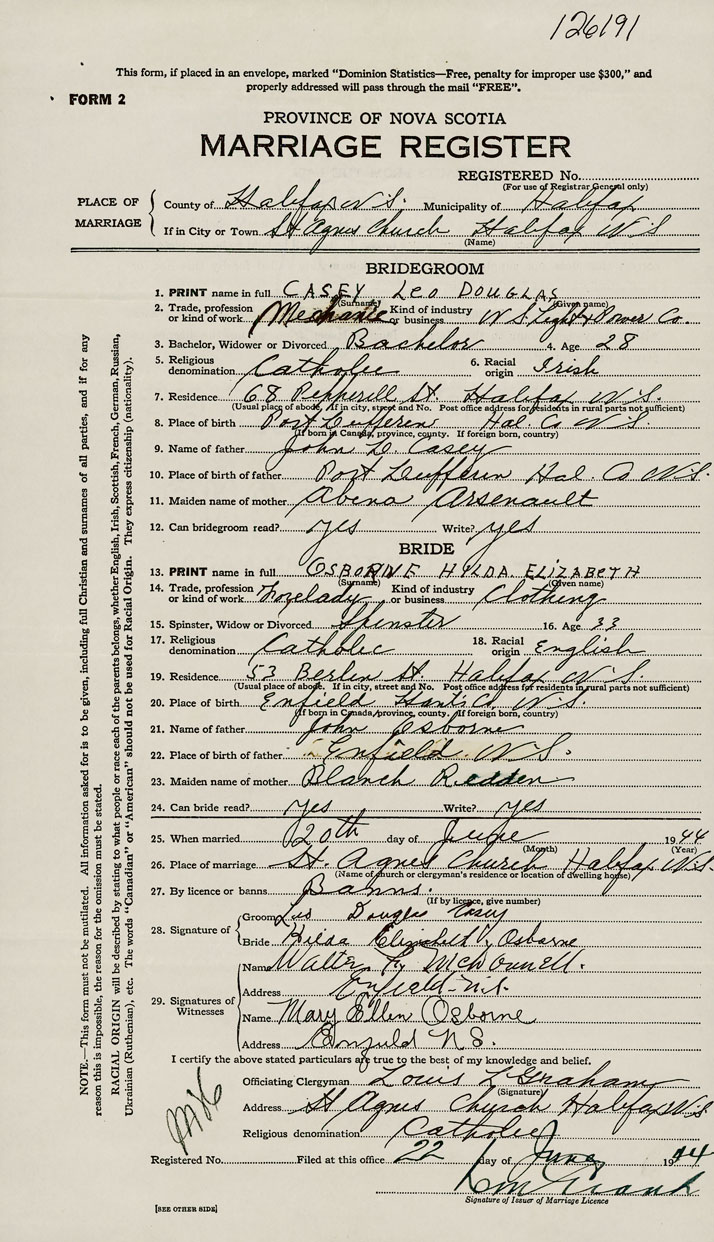 126191
This form, if placed in an envelope, marked "Dominion Statistics—Free, penalty for improper use $300," and
properly addressed will pass through the mail "FREE".
FORM 2
PROVINCE OF NOVA SCOTIA
MARRIAGE REGISTER
REGISTERED No.
(For use of Registrar General only)
PLACE OF MARRIAGE
County of Halifax N.S. Municipality of Halifax
If in City or Town St Agnes Church Halifax N S
(Name)
BRIDEGROOM
1. PRINT name in full CASEY LEO DOUGLAS
(Surname) (Given name)
2. Trade, profession or kind of work Mechanic Kind of industry or business N.S. Light & Power Co.
3. Bachelor, Widower or Divorced Bachelor 4. Age 28
5. Religious denomination Catholic 6. Racial origin Irish
7. Residence 68 Pepperill St. Halifax N.S.
(Usual place of abode. If in city, street and No. Post office address for residents in rural parts not sufficient)
8. Place of birth Port Dufferin Hal. Co N.S.
(If born in Canada, province, county. If foreign born, country)
9. Name of father John D. Casey
10. Place of birth of father Port Dufferin Hal. Co N.S.
11. Maiden name of mother Abina Arsenault
12. Can bridegroom read? yes Write? yes
BRIDE
13. PRINT name in full OSBORNE HILDA ELIZABETH
(Surname) (Given name)
14. Trade, profession or kind of work Forelady Kind of industry or business Clothing
15. Spinster, Widow or Divorced Spinster 16. Age 33
17. Religious denomination Catholic 18. Racial origin English
19. Residence 53 Berlin St. Halifax N.S.
(Usual place of abode. If in city, street and No. Post office address for residents in rural parts not sufficient)
20. Place of birth Enfield Hants Co. N.S.
(If born in Canada, province, county. If foreign born, country)
21. Name of father John Osborne
22. Place of birth of father Enfield N.S.
23. Maiden name of mother Blanch Redden
24. Can bride read? yes Write? yes
25. When married 20th day of June 1944
(Month) (Year)
26. Place of marriage St. Agnes Church Halifax N.S.
(Name of church or clergyman's residence or location of dwelling house)
27. By licence or banns Banns.
(If by licence, give number)
28. Signature of
Groom Leo Douglas Casey
Bride Hilda Elizabeth Osborne
29. Signatures of Witnesses
Name Walter F. McDonnell.
Address Enfield N.S.
Name Mary Ellen Osborne
Address Enfield N.S.
I certify the above stated particulars are true to the best of my knowledge and belief.
Officiating Clergyman Louis L Graham
(Signature)
Address St Agnes Church Halifax N.S
Religious denomination Catholic
Registered No. Filed at this office 22 day of June 1944
Signature of Issuer of Marriage Licence
[SEE OTHER SIDE]
NOTE.—This form must not be mutilated. All information asked for is to be given, including full Christian and surnames of all parties, and if for any
reason this is impossible, the reason for the omission must be stated.
RACIAL ORIGIN will be described by stating to what people or race each of the parents belongs, whether English, Irish, Scottish, French, German, Russian,
Ukrainian (Ruthenian), etc. The words "Canadian" or "American" should not be used for Racial Origin. They express citizenship (nationality).